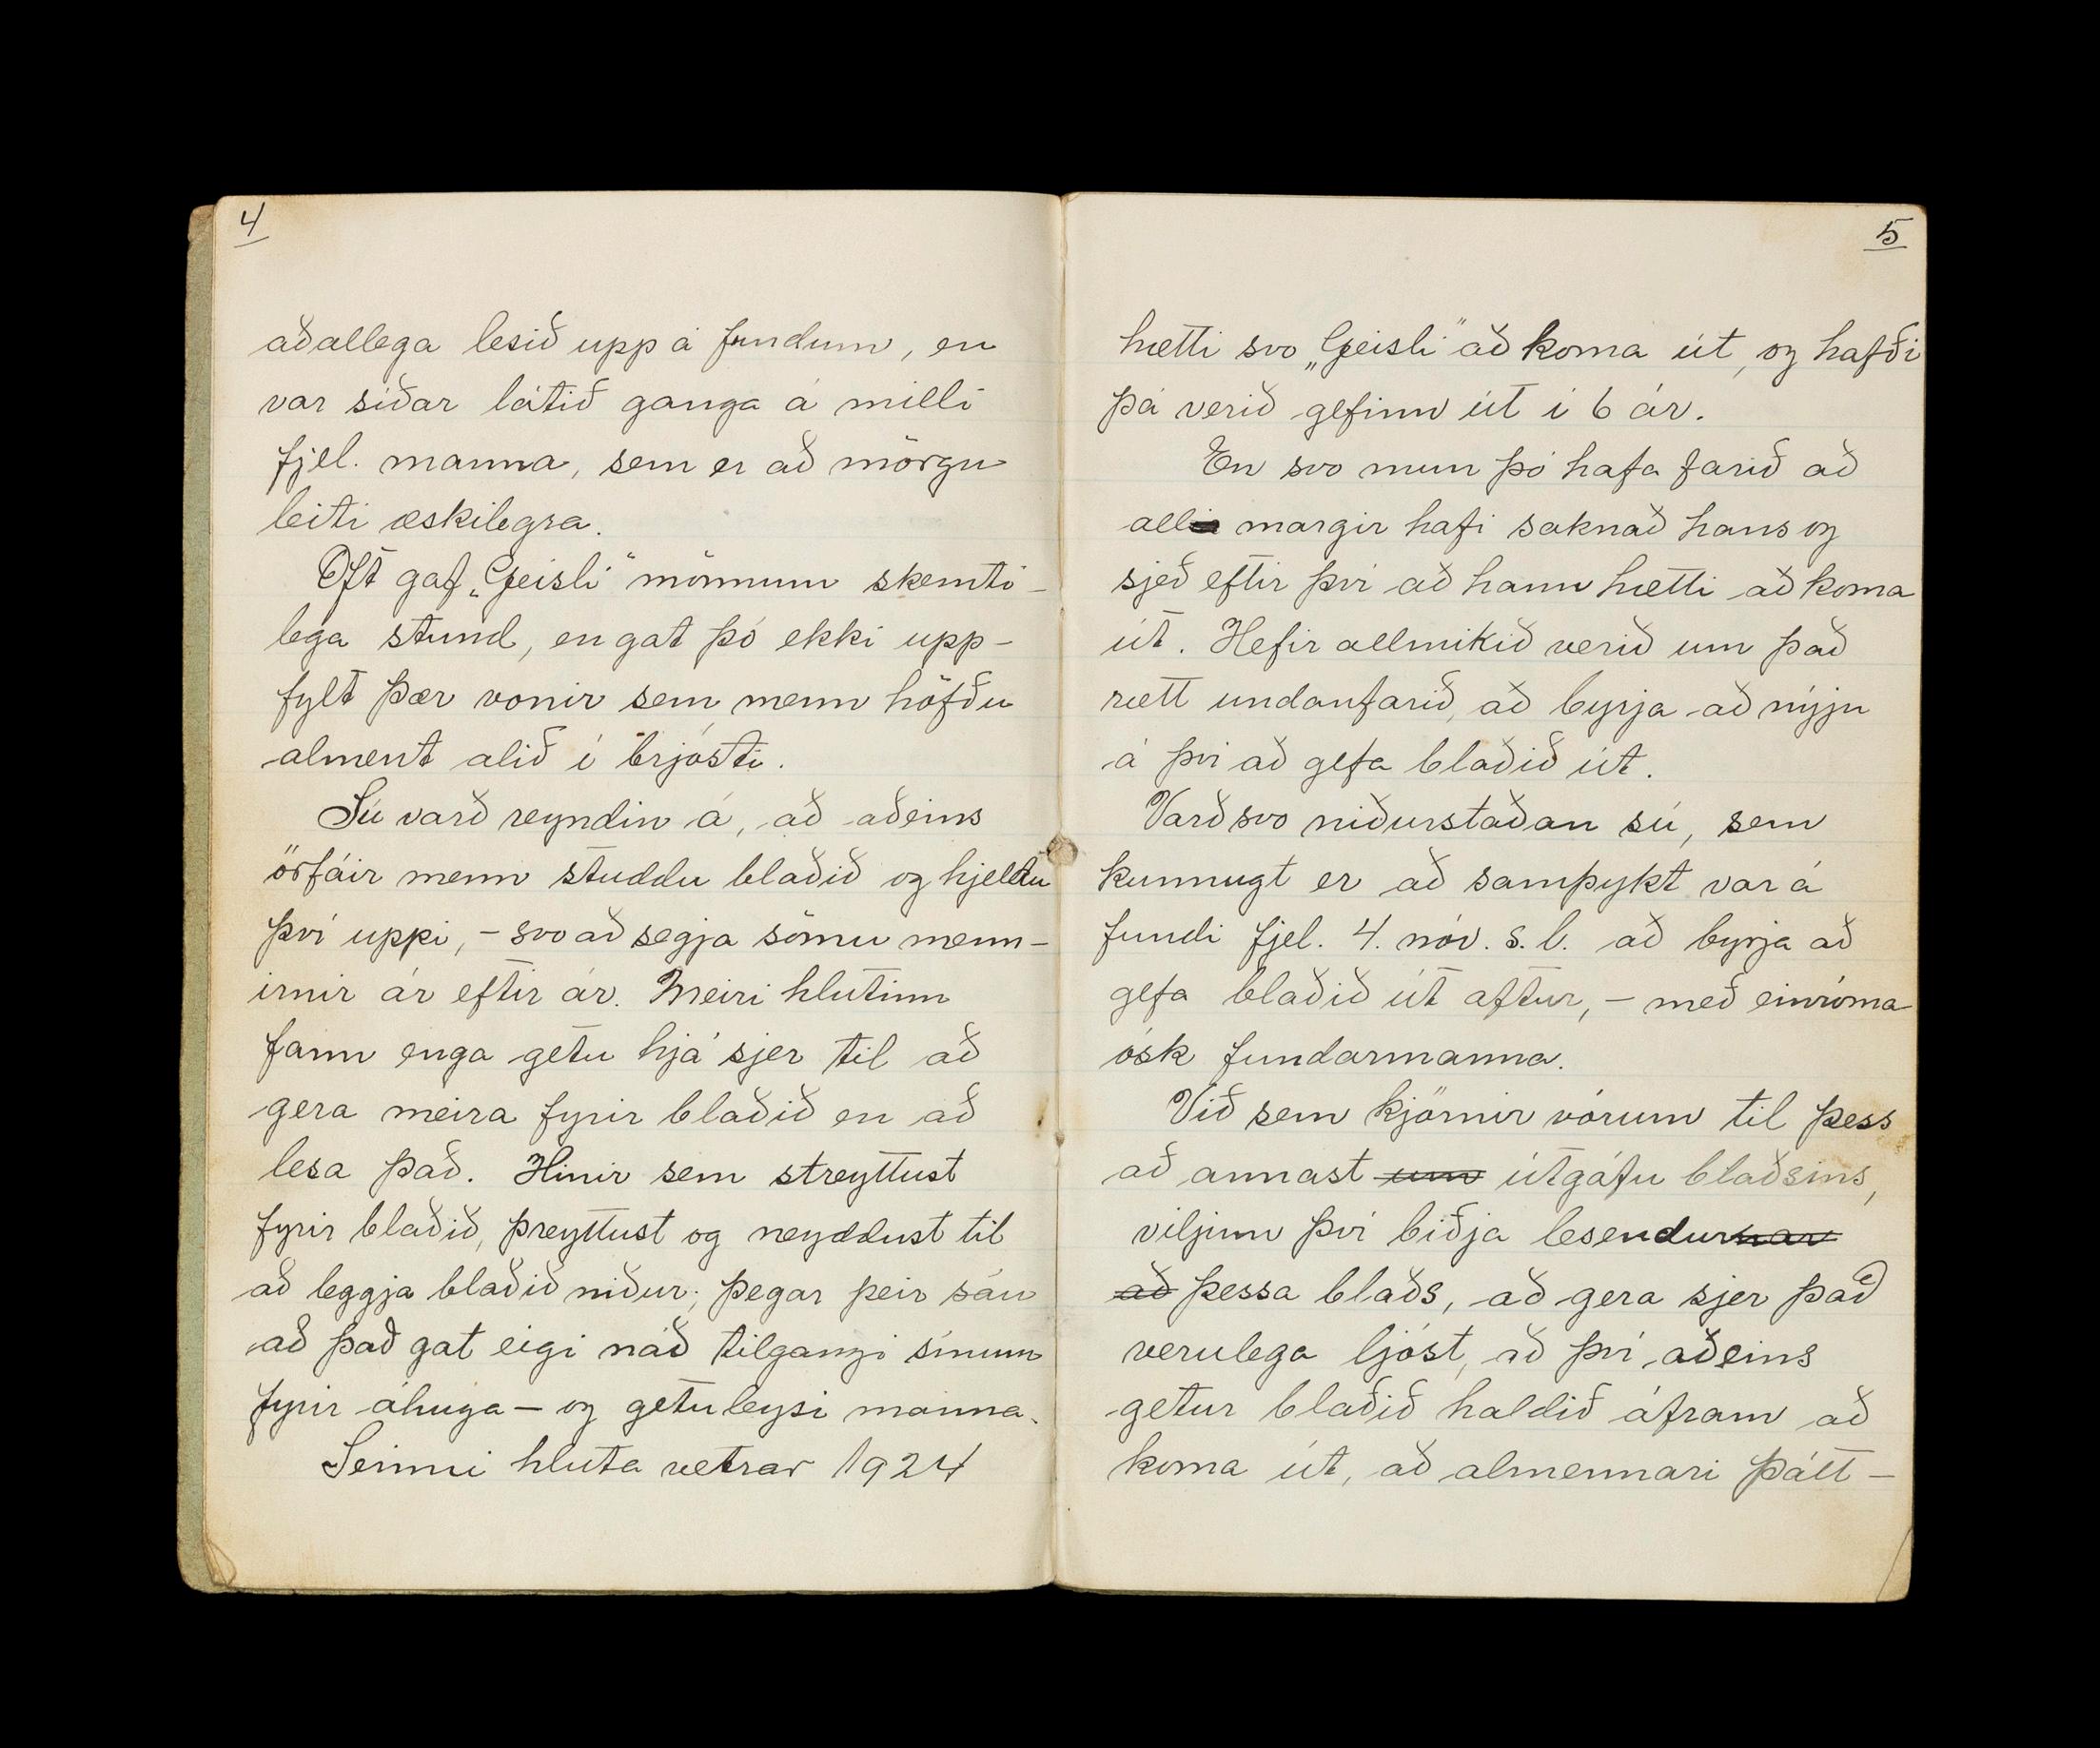 4
aðallega lesið upp á fundum, en
var síðar látið ganga á milli
fjel. manna, sem er að mörgu
leiti æskilegra.
Oft gaf „Geisli“ mönnum skemti-
lega stund, en gat þó ekki upp-
fylt þær vonir sem menn höfðu
alment alið í brjósti.
Sú varð reyndin á, að aðeins
örfáir menn studdu blaðið og hjeldu
því uppi, - svo að segja sömu menn-
irnir ár eftir ár. Meiri hlutinn
fann enga getu hjá sjer til að
gera meira fyrir blaðið en að
lesa það. Hinir sem streyttust
fyrir blaðið, þreyttust og neyddust til
að leggja blaðið niður; þegar þeir sáu
að það gat eigi náð tilgangi sínum
fyrir áhuga - og getuleysi manna.
Seinni hluta vetrar 1924
5
hætti svo „Geisli“ að koma út, og hafði
þá verið gefinn út í 6 ár.
En svo mun þó hafa farið að
all margir hafi saknað hans og
sjeð eftir því að hann hætti að koma
út. Hefir allmikið verið um það
rætt undanfarið, að byrja að nýju
á því að gefa blaðið út.
Varð svo niðurstaðan sú, sem
kunnugt er að samþykt var á
fundi fjel. 4. nóv. s.l. að byrja að
gefa blaðið út aftur, - með einróma
ósk fundarmanna.
Við sem kjörnir vórum til þess
að annast um útgáfu blaðsins,
viljum því biðja lesendurnar
að þessa blaðs, að gera sjer það
verulega ljóst, að því aðeins
getur blaðið haldið áfram að
koma út, að almennari þátt-